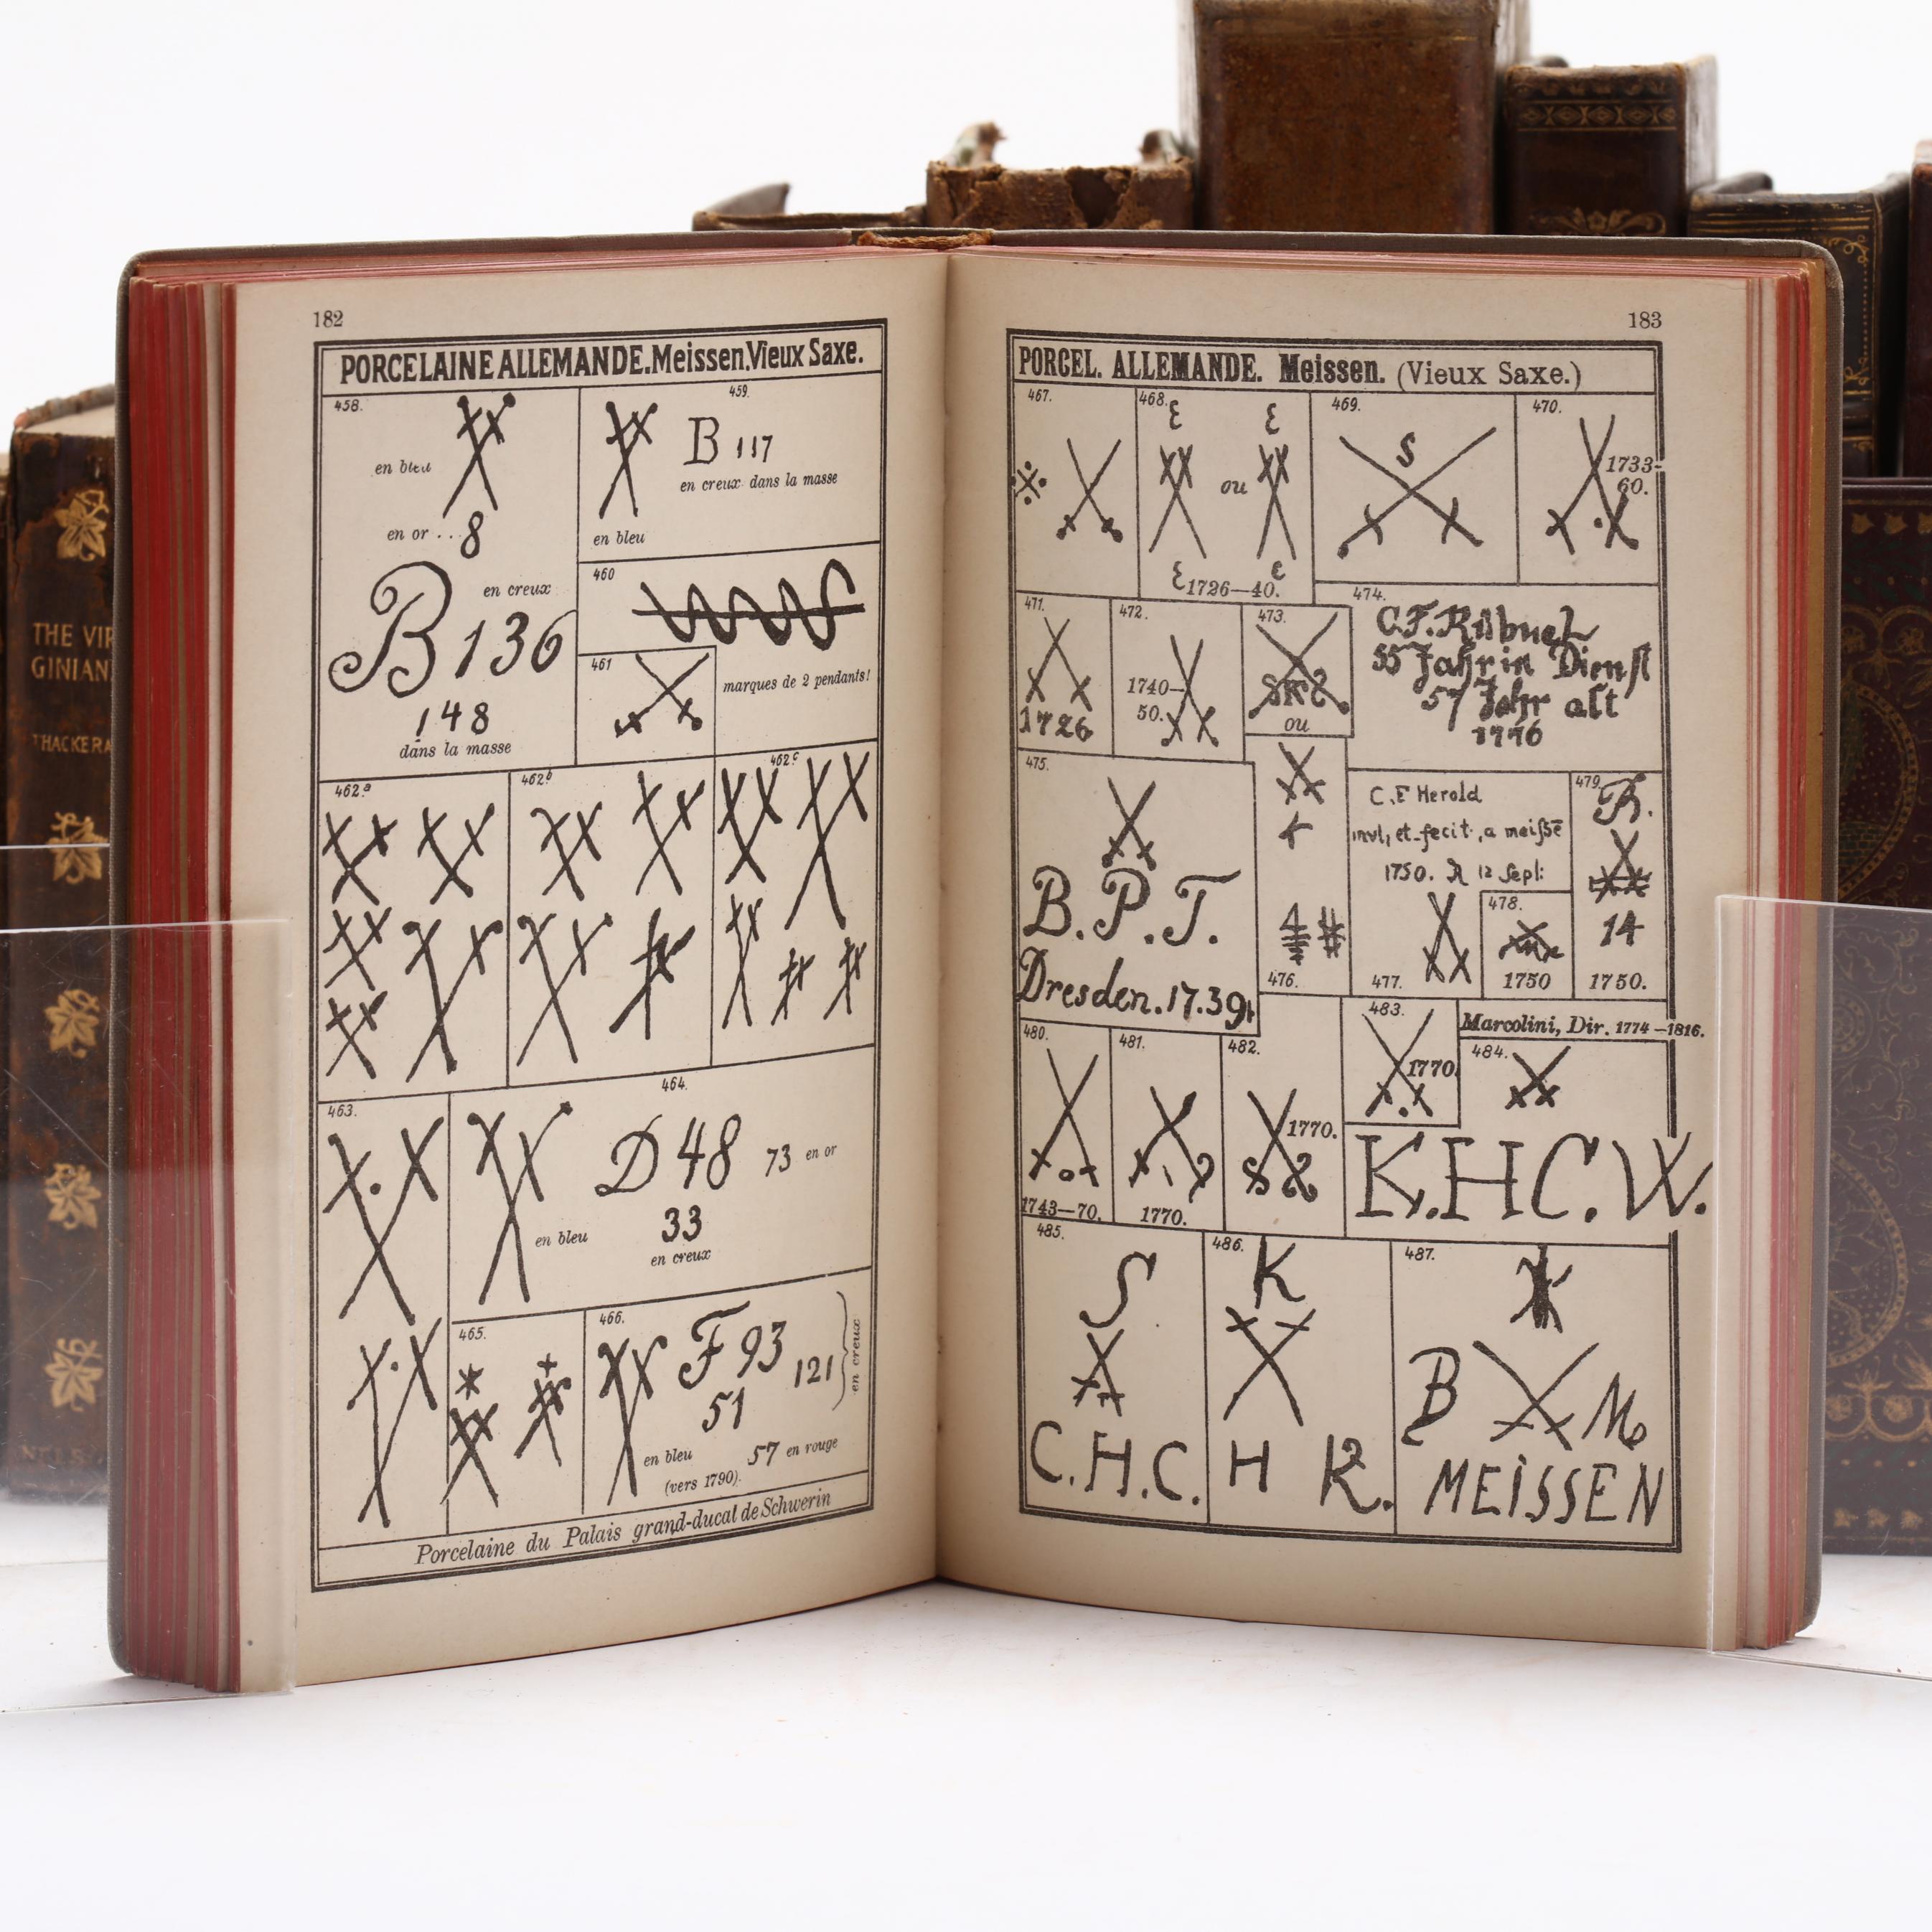 182
PORCELAINE ALLEMANDE. Meissen. Vieux Saxe.
458.
en bleu
en or ... 8
B 136
en creux
148
dans la masse
459.
B 117
en creux dans la masse
en bleu
460
461
marques de 2 pendants!
462.a
462.b
462.c
463.
464.
D 48
73 en or
33
en bleu
en creux
465.
466.
F 93
121
51
en creux
en bleu
57 en rouge
(vers 1790).
Porcelaine du Palais grand-ducal de Schwerin
183
PORCEL. ALLEMANDE. Meissen. (Vieux Saxe.)
467.
468.
ou
1726—40.
469.
S
470.
1733-
60.
471.
1726
472.
1740—
50.
473.
ou
474.
55 Jahr in Dienst
57 Jahr alt
1776
475.
B.P.T.
Dresden.17.39.
476.
C.F Herold
invt, et fecit, a meißẽ
1750. 12 Sept:
477.
478.
1750
479.
14
1750.
480.
1743—70.
481.
1770.
482.
1770.
483.
1770
Marcolini, Dir. 1774—1816.
484.
K.H.C.W.
485.
S
C.H.C.
486.
K
H K.
487.
B
MEISSEN
THE VIR
GINIAN
THACKERA